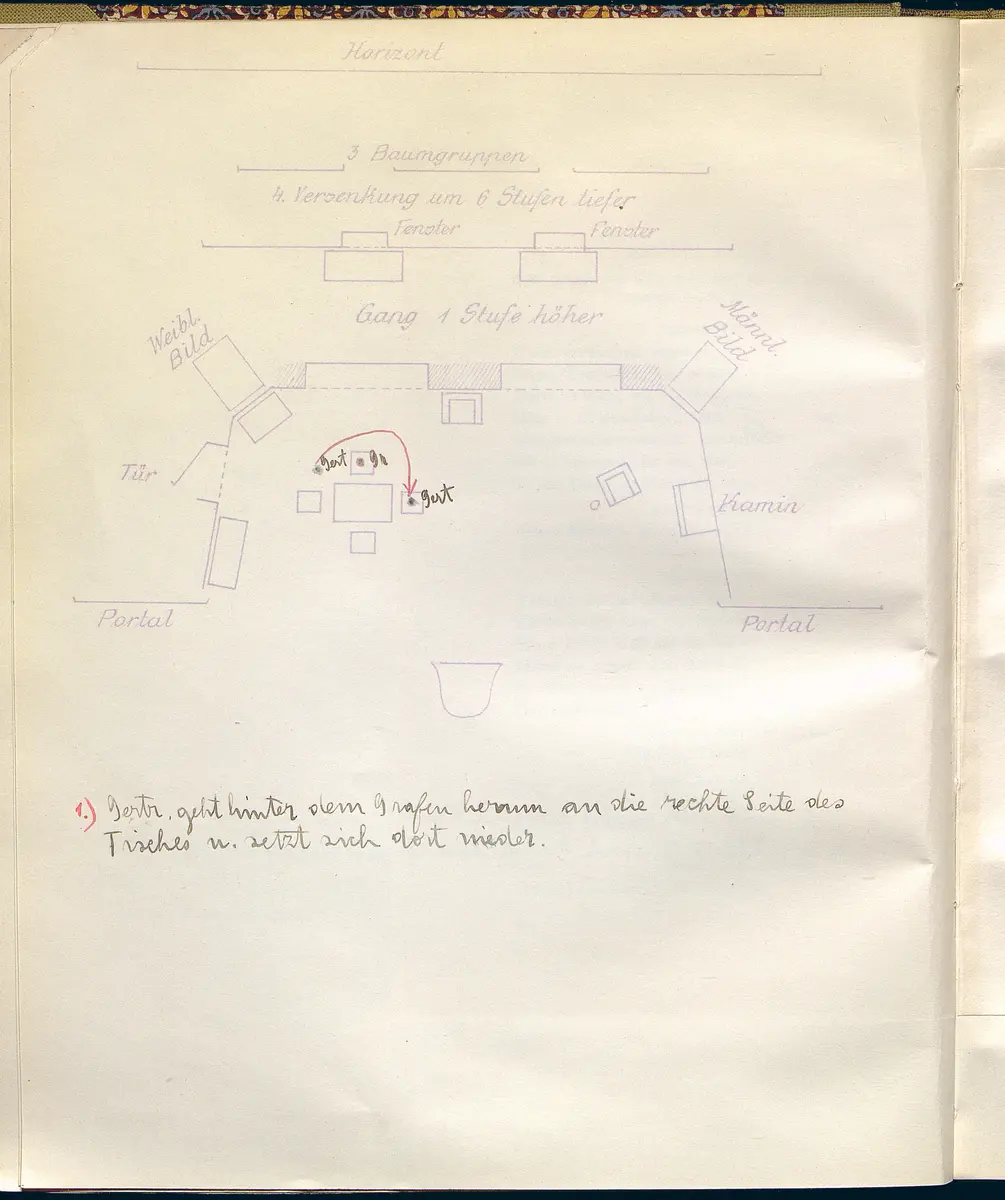 Horizont
3 Baumgruppen
4. Versenkung um 6 Stufen tiefer
Fenster
Fenster
Gang 1 Stufe höher
Weibl.
Bild
Männl.
Bild
Tür
Gert
Gr
Gert
Kamin
Portal
Portal
1.) Gertr. geht hinter dem Grafen herum an die rechte Seite des
Tisches u. setzt sich dort nieder.